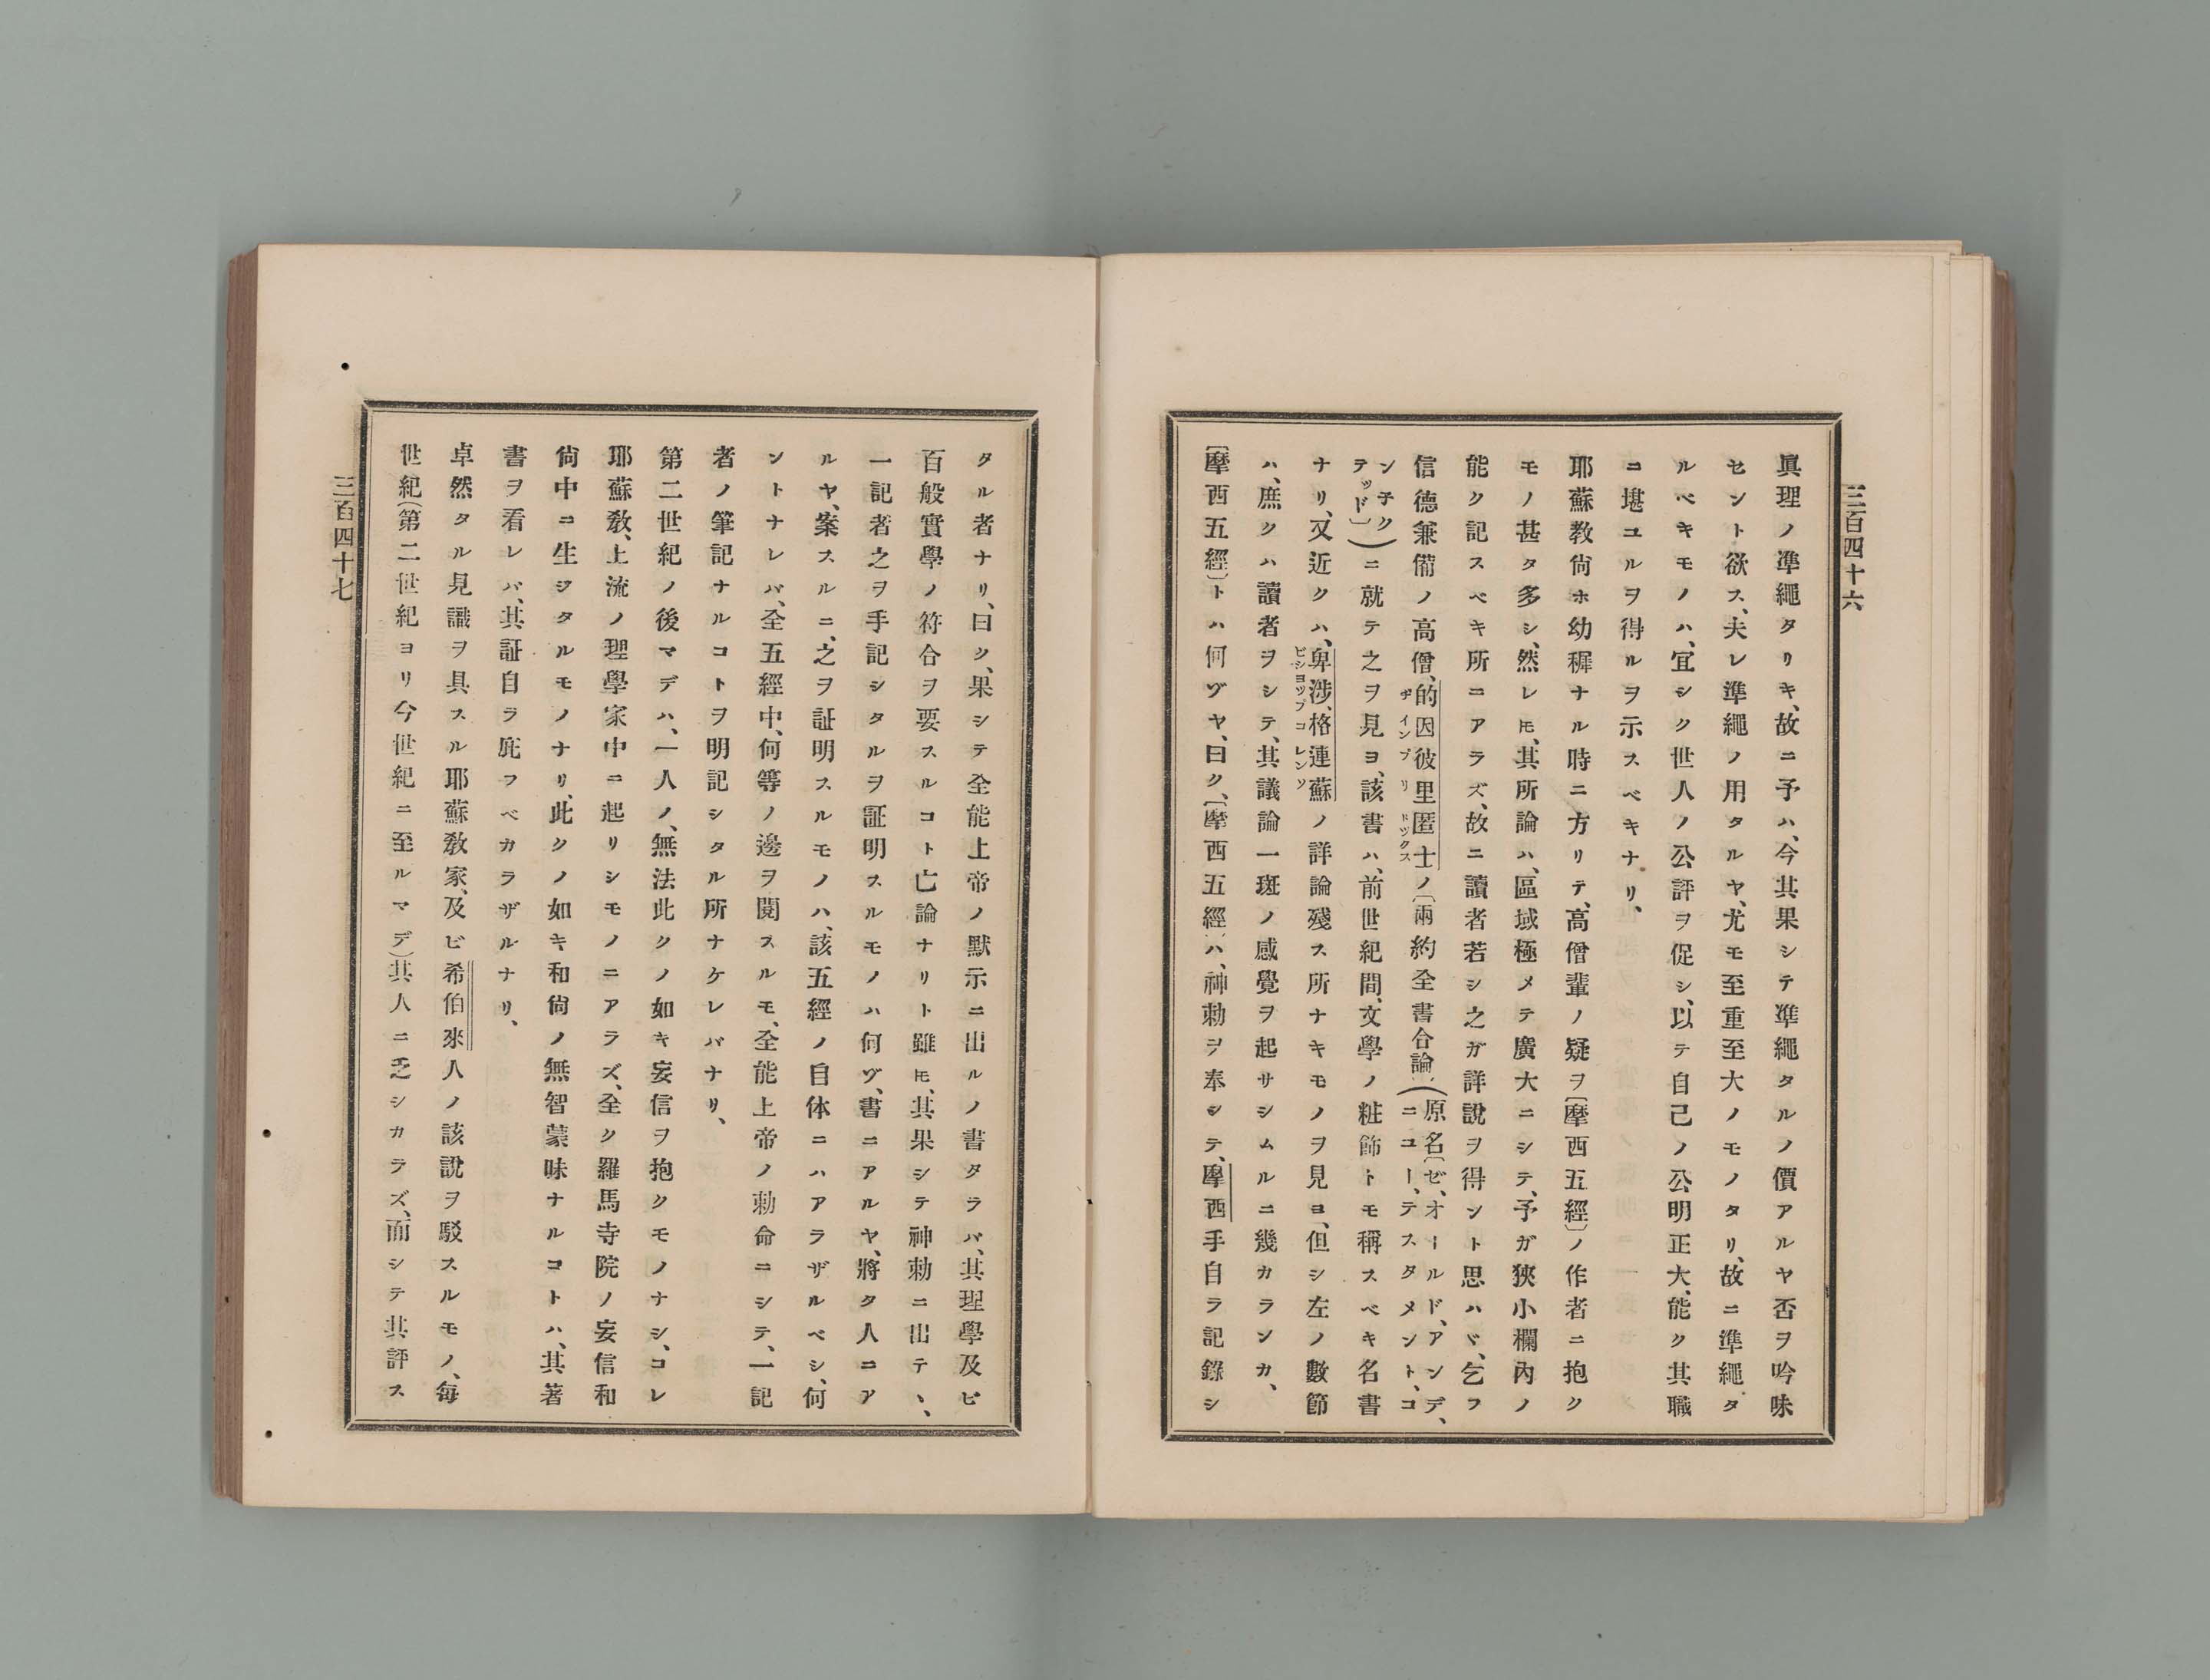 三百四十六
眞理ノ準繩タリキ、故ニ予ハ、今其果シテ準繩タルノ價アルヤ否ヲ吟味
セント欲ス、夫レ準繩ノ用タルヤ、尤モ至重至大ノモノタリ、故ニ準繩タ
ルベキモノハ、宜シク世人ノ公評ヲ促シ、以テ自己ノ公明正大、能ク其職
ニ堪ユルヲ得ルヲ示スベキナリ、
耶蘇教尙ホ幼穉ナル時ニ方リテ、高僧輩ノ疑ヲ〔摩西五經〕ノ作者ニ抱ク
モノ甚タ多シ、然レ𪜈、其所論ハ、區域極メテ廣大ニシテ、予ガ狹小欄內ノ
能ク記スベキ所ニアラズ、故ニ讀者若シ之ガ詳說ヲ得ント思ハヾ、乞フ
信德兼備ノ高僧、的因彼里匿士ノ〔兩約全書合論〕(原名〔ゼ、オールド、アンデ、
ヂインプリドックス
ニユー、テスタメント、コ
ンチク)
テッド〕ニ就テ之ヲ見ヨ、該書ハ、前世紀間、文學ノ粧飾トモ稱スベキ名書
ナリ、又近クハ、卑涉、格連蘇ノ詳論殘ス所ナキモノヲ見ヨ、但シ左ノ數節
ビショップコレンソ
ハ、庶クハ讀者ヲシテ、其議論一斑ノ感覺ヲ起サシムルニ幾カランカ、
〔摩西五經〕トハ何ゾヤ、曰ク、〔摩西五經〕ハ、神勅ヲ奉シテ、摩西手自ラ記錄シ
タル者ナリ、曰ク、果シテ全能上帝ノ默示ニ出ルノ書タラバ、其理學及ビ
百般實學ノ符合ヲ要スルコト亡論ナリト雖𪜈、其果シテ神勅ニ出テヽ、
一記者之ヲ手記シタルヲ証明スルモノハ何ゾ、書ニアルヤ、將タ人ニア
ルヤ、案スルニ、之ヲ証明スルモノハ、該五經ノ自体ニハアラザルベシ、何
ントナレバ、全五經中、何等ノ邊ヲ閱スルモ、全能上帝ノ勅命ニシテ、一記
者ノ筆記ナルコトヲ明記シタル所ナケレバナリ、
第二世紀ノ後マデハ、一人ノ、無法此クノ如キ妄信ヲ抱クモノナシ、コレ
耶蘇敎、上流ノ理學家中ニ起リシモノニアラズ、全ク羅馬寺院ノ妄信和
尙中ニ生ジタルモノナリ、此クノ如キ和尙ノ無智蒙昧ナルコトハ、其著
書ヲ看レバ、其証自ラ庇フベカラザルナリ、
卓然タル見識ヲ具スル耶蘇敎家、及ビ希伯來人ノ該說ヲ駁スルモノ、每
世紀(第二世紀ヨリ今世紀ニ至ルマデ)其人ニ乏シカラズ、而シテ其評ス
三百四十七